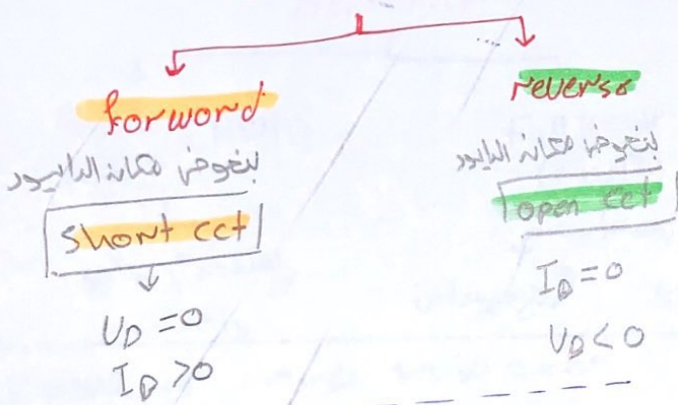 forword
بنعوض مكان الدايود
short cct
V_D = 0
I_D > 0
reverse
بنعوض مكان الدايود
open cct
I_D = 0
V_D < 0